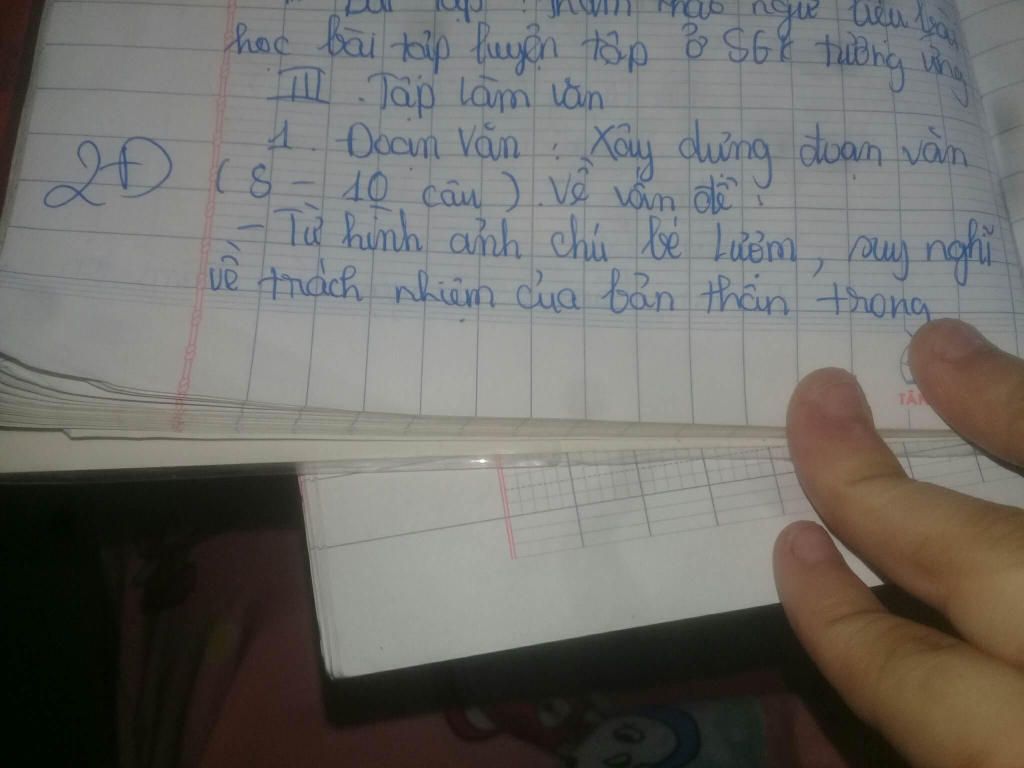 Bài tập : Tham khảo ngữ liệu
học bài tập luyện tập ở SGK tương ứng
III. Tập làm văn
2Đ
1. Đoạn văn : Xây dựng đoạn văn
( 8 – 10 câu ). Về vấn đề :
– Từ hình ảnh chú bé Lượm, suy nghĩ
về trách nhiệm của bản thân trong